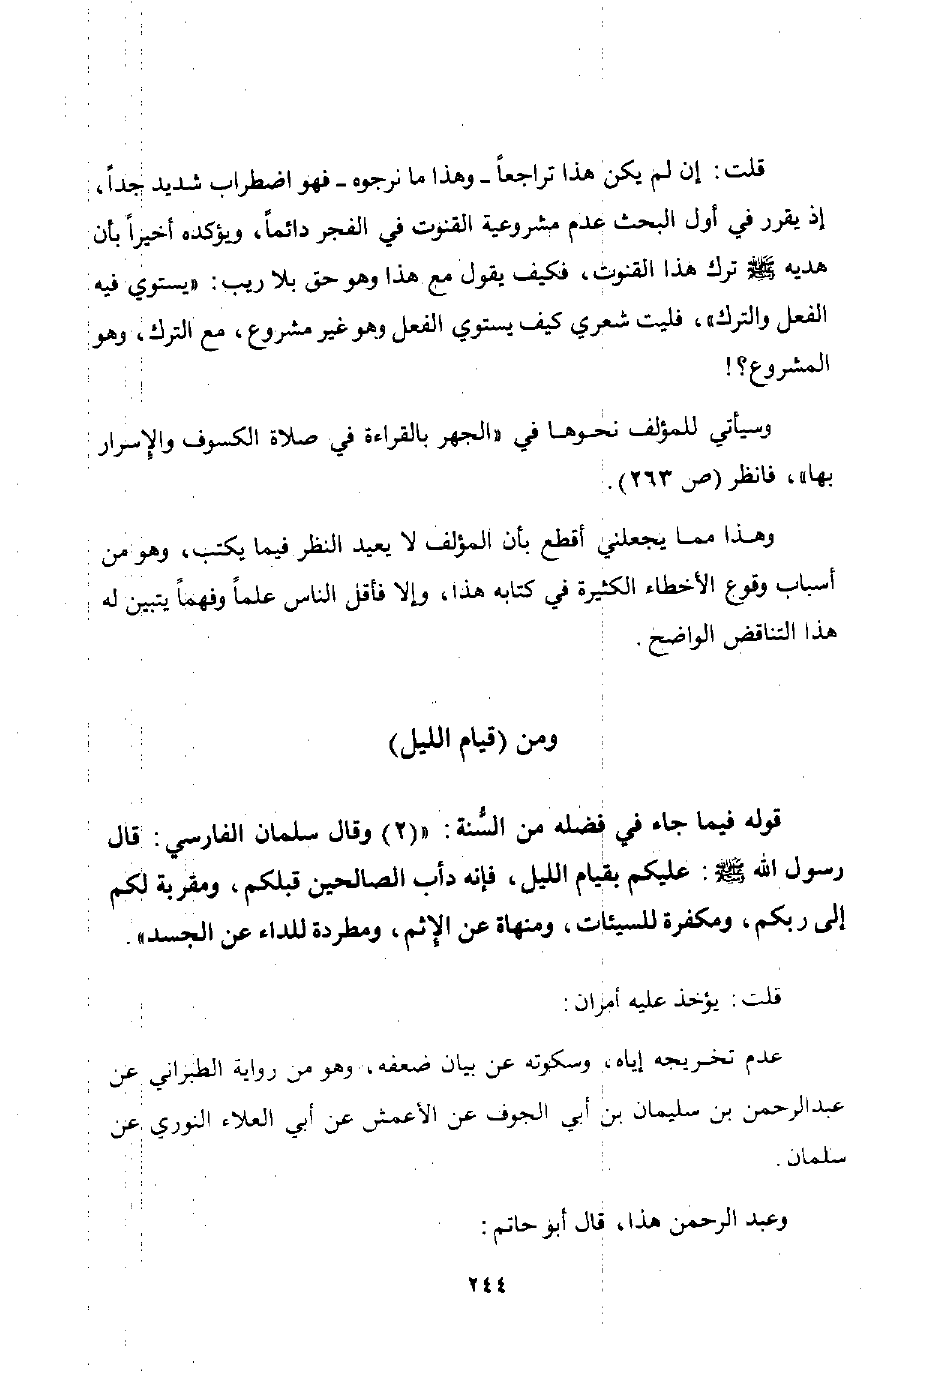 قلت: إن لم يكن هذا تراجعاً ـ وهذا ما نرجوه ـ فهو اضطراب شديد جداً،
إذ يقرر في أول البحث عدم مشروعية القنوت في الفجر دائماً، ويؤكده أخيراً بأن
هديه ﷺ ترك هذا القنوت، فكيف يقول مع هذا وهو حق بلا ريب: «يستوي فيه
الفعل والترك»، فليت شعري كيف يستوي الفعل وهو غير مشروع، مع الترك، وهو
المشروع؟!
وسيأتي للمؤلف نحوها في «الجهر بالقراءة في صلاة الكسوف والإسرار
بها»، فانظر (ص ٢٦٣).
وهذا مما يجعلني أقطع بأن المؤلف لا يعيد النظر فيما يكتب، وهو من
أسباب وقوع الأخطاء الكثيرة في كتابه هذا، وإلا فأقل الناس علماً وفهماً يتبين له
هذا التناقض الواضح.
ومن (قيام الليل)
قوله فيما جاء في فضله من السُّنة: «(٢) وقال سلمان الفارسي: قال
رسول الله ﷺ: عليكم بقيام الليل، فإنه دأب الصالحين قبلكم، ومقربة لكم
إلى ربكم، ومكفرة للسيئات، ومنهاة عن الإثم، ومطردة للداء عن الجسد».
قلت: يؤخذ عليه أمران:
عدم تخريجه إياه، وسكوته عن بيان ضعفه، وهو من رواية الطبراني عن
عبدالرحمن بن سليمان بن أبي الجوف عن الأعمش عن أبي العلاء النوري عن
سلمان.
وعبد الرحمن هذا، قال أبو حاتم:
٢٤٤